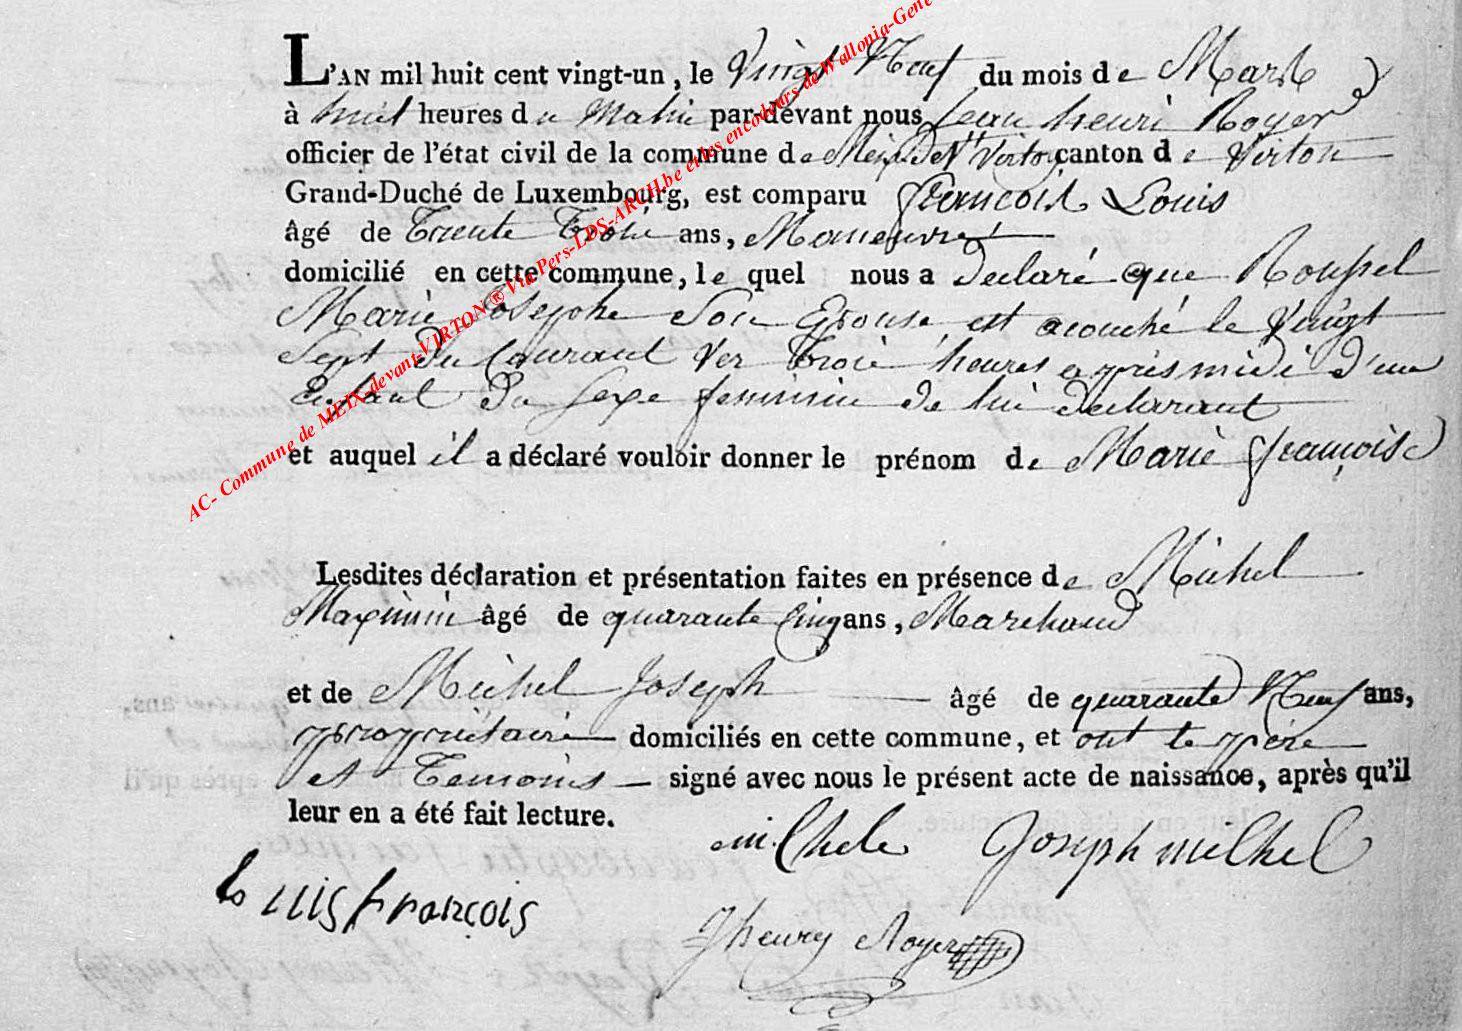 L'AN mil huit cent vingt-un, le Vingt Neuf du mois de Mars
à huit heures du Matin par-devant nous Jean henri Royer
officier de l'état civil de la commune de Meix devt Virton canton de Virton
Grand-Duché de Luxembourg, est comparu francois Louis
âgé de Trente Trois ans, Manœuvre
domicilié en cette commune, le quel nous a declaré que Roussel
Marie Josephe Son Epouse, est acouché le Vingt
Sept du Courant Ver Trois heures apris midi d'un
Enfant Du Sexe feminin de lui declarant
et auquel il a déclaré vouloir donner le prénom de Marie françoise
Lesdites déclaration et présentation faites en présence de Michel
Maximin âgé de quarante Cinq ans, Marchand
et de Michel Joseph âgé de quarante Neuf ans,
propriétaire domiciliés en cette commune, et ont le père
et Temoins signé avec nous le présent acte de naissance, après qu'il
leur en a été fait lecture.
Joseph michel
Louis françois
Jhenry Royer
AC- Commune de MEIX-devant-VIRTON ® Via Pers-LDS-ARCH.be et les encodeurs de Wallonia-Gene